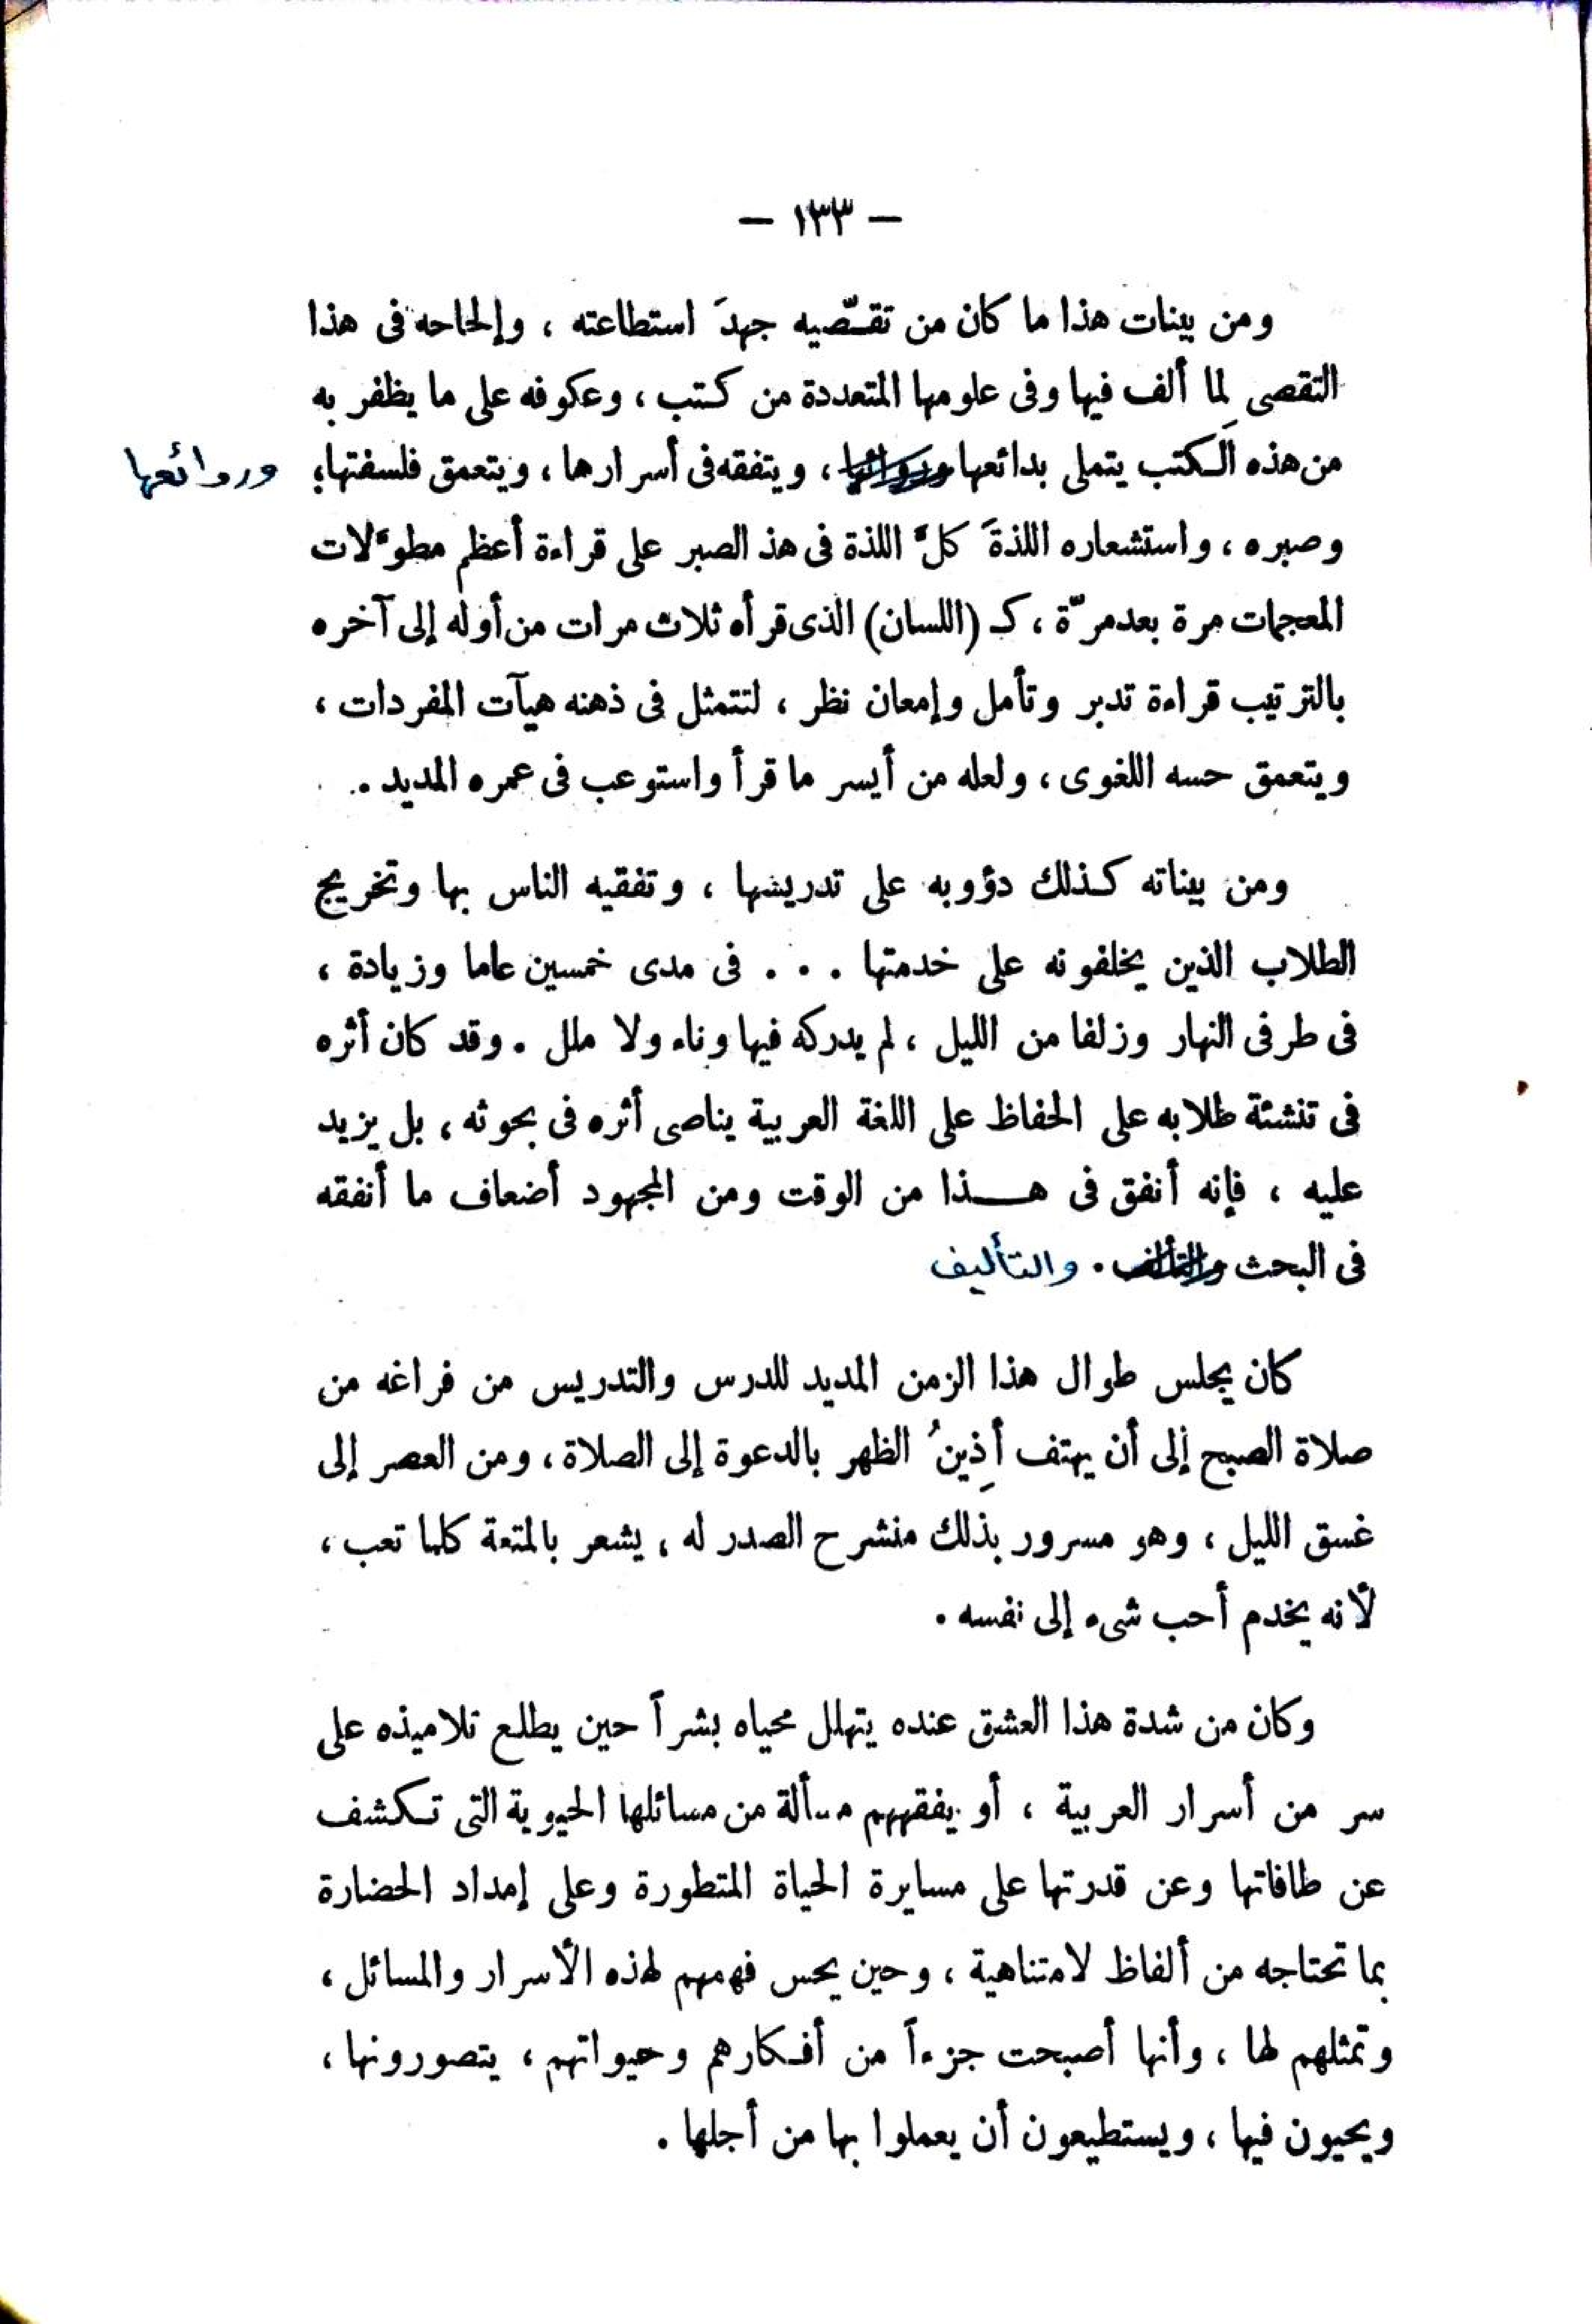 — ١٣٣ —
ومن بينات هذا ما كان من تقصّيه جهدَ استطاعته ، وإلحاحه فى هذا
التقصى لِما ألف فيها وفى علومها المتعددة من كتب ، وعكوفه على ما يظفر به
من هذه الكتب يتملى بدائعها ، ويتفقه فى أسرارها ، ويتعمق فلسفتها؛ وروائعها
وصبره ، واستشعاره اللذةَ كلَّ اللذة فى هذ الصبر على قراءة أعظم مطوَّلات
المعجمات مرة بعد مرّة ، كـ (اللسان) الذى قرأه ثلاث مرات من أوله إلى آخره
بالترتيب قراءة تدبر وتأمل وإمعان نظر ، لتتمثل فى ذهنه هيآت المفردات ،
ويتعمق حسه اللغوى ، ولعله من أيسر ما قرأ واستوعب فى عمره المديد .
ومن بيناته كذلك دؤوبه على تدريسها ، وتفقيه الناس بها وتخريج
الطلاب الذين يخلفونه على خدمتها . . . فى مدى خمسين عاما وزيادة ،
فى طرفى النهار وزلفا من الليل ، لم يدركه فيها وناء ولا ملل . وقد كان أثره
فى تنشئة طلابه على الحفاظ على اللغة العربية يناصى أثره فى بحوثه ، بل يزيد
عليه ، فإنه أنفق فى هــذا من الوقت ومن المجهود أضعاف ما أنفقه
فى البحث . والتأليف
كان يجلس طوال هذا الزمن المديد للدرس والتدريس من فراغه من
صلاة الصبح إلى أن يهتف أذِينُ الظهر بالدعوة إلى الصلاة ، ومن العصر إلى
غسق الليل ، وهو مسرور بذلك منشرح الصدر له ، يشعر بالمتعة كلما تعب ،
لأنه يخدم أحب شىء إلى نفسه .
وكان من شدة هذا العشق عنده يتهلل محياه بشراً حين يطلع تلاميذه على
سر من أسرار العربية ، أو يفقههم مسألة من مسائلها الحيوية التى تكشف
عن طاقاتها وعن قدرتها على مسايرة الحياة المتطورة وعلى إمداد الحضارة
بما تحتاجه من ألفاظ لامتناهية ، وحين يحس فهمهم لهذه الأسرار والمسائل ،
وتمثلهم لها ، وأنها أصبحت جزءاً من أفكارهم وحيواتهم ، يتصورونها ،
ويحيون فيها ، ويستطيعون أن يعملوا بها من أجلها .